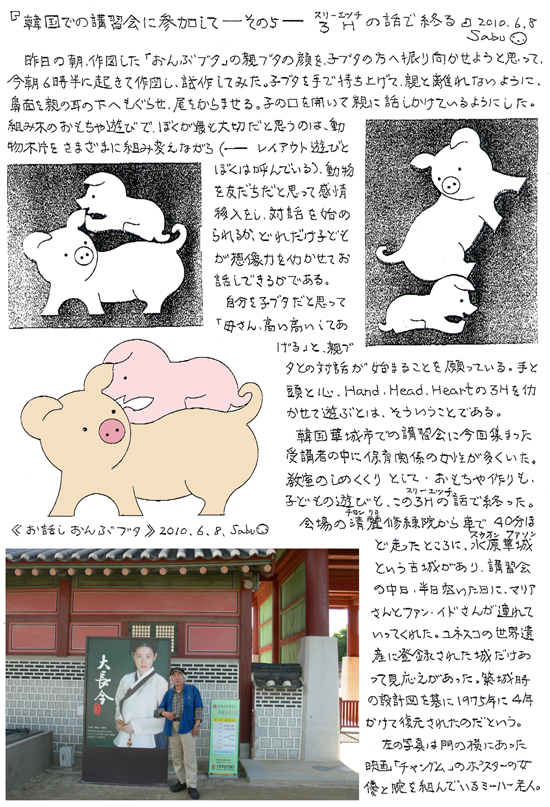 『韓国での講習会に参加して―その5― スリーエッチ 3Hの話で終る』 2010.6.8
Sabu
昨日の朝、作図した「おんぶブタ」の親ブタの顔を、子ブタの方へ振り向かせようと思って、
今朝6時半に起きて作図し、試作してみた。子ブタを手で持ち上げて、親と離れないように、
鼻面を親の耳の下へもぐらせ、尾をからませる。子の口を開いて親に話しかけているようにした。
組み木のおもちゃ遊びで、ぼくが最も大切だと思うのは、動
物木片をさまざまに組み変えながら(―レイアウト遊びと
ぼくは呼んでいる)、動物
を友だちだと思って感情
移入をし、対話を始め
られるか、どれだけ子ども
が想像力を仂かせてお
話しできるかである。
自分を子ブタだと思って
「母さん、高い高いしてあ
げる」と、親ブ
タとの対話が始まることを願っている。手と
頭と心、Hand、Head、Heartの3Hを仂
かせて遊ぶとは、そういうことである。
韓国華城市での講習会に今回集まった
受講者の中に保育関係の女性が多くいた。
教室のしめくくりとして・おもちゃ作りも、
子どもの遊びも、この3Hスリーエッチの話で終った。
会場の清麗チョンリョ修練院から車で40分ほ
ど走ったところに、水原華城スウォンファソン
という古城があり、講習会
の中日、半日空いた日に、マリア
さんとファン・イドさんが連れて
いってくれた。ユネスコの世界遺
産に登録された城だけあ
って見応えがあった。築城時
の設計図を基に1975年に4年
かけて復元されたのだという。
左の写真は門の横にあった
映画「チャングム」のポスターの女
優と腕を組んでいるミーハー老人。
《お話しおんぶブタ》2010.6.8、Sabu
大長今